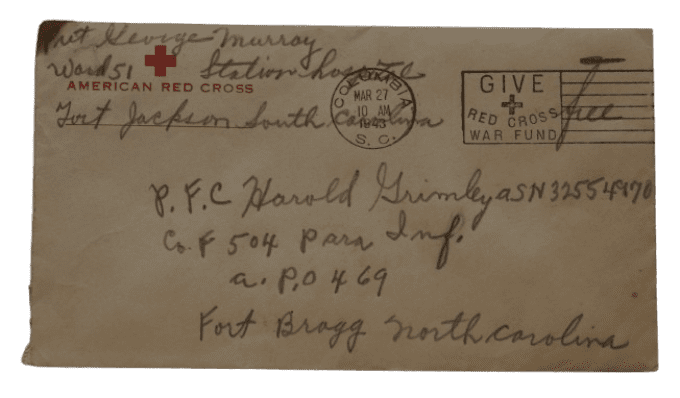 Pvt George Murray
Ward 51 Station hospital
AMERICAN RED CROSS
Fort Jackson South Carolina
COLUMBIA
MAR 27
10 AM
1943
S. C.
GIVE
RED CROSS
WAR FUND
Free
P.F.C Harold Grimley ASN 32554970
Co. F 504 Para Inf.
a. P.O 469
Fort Bragg North Carolina